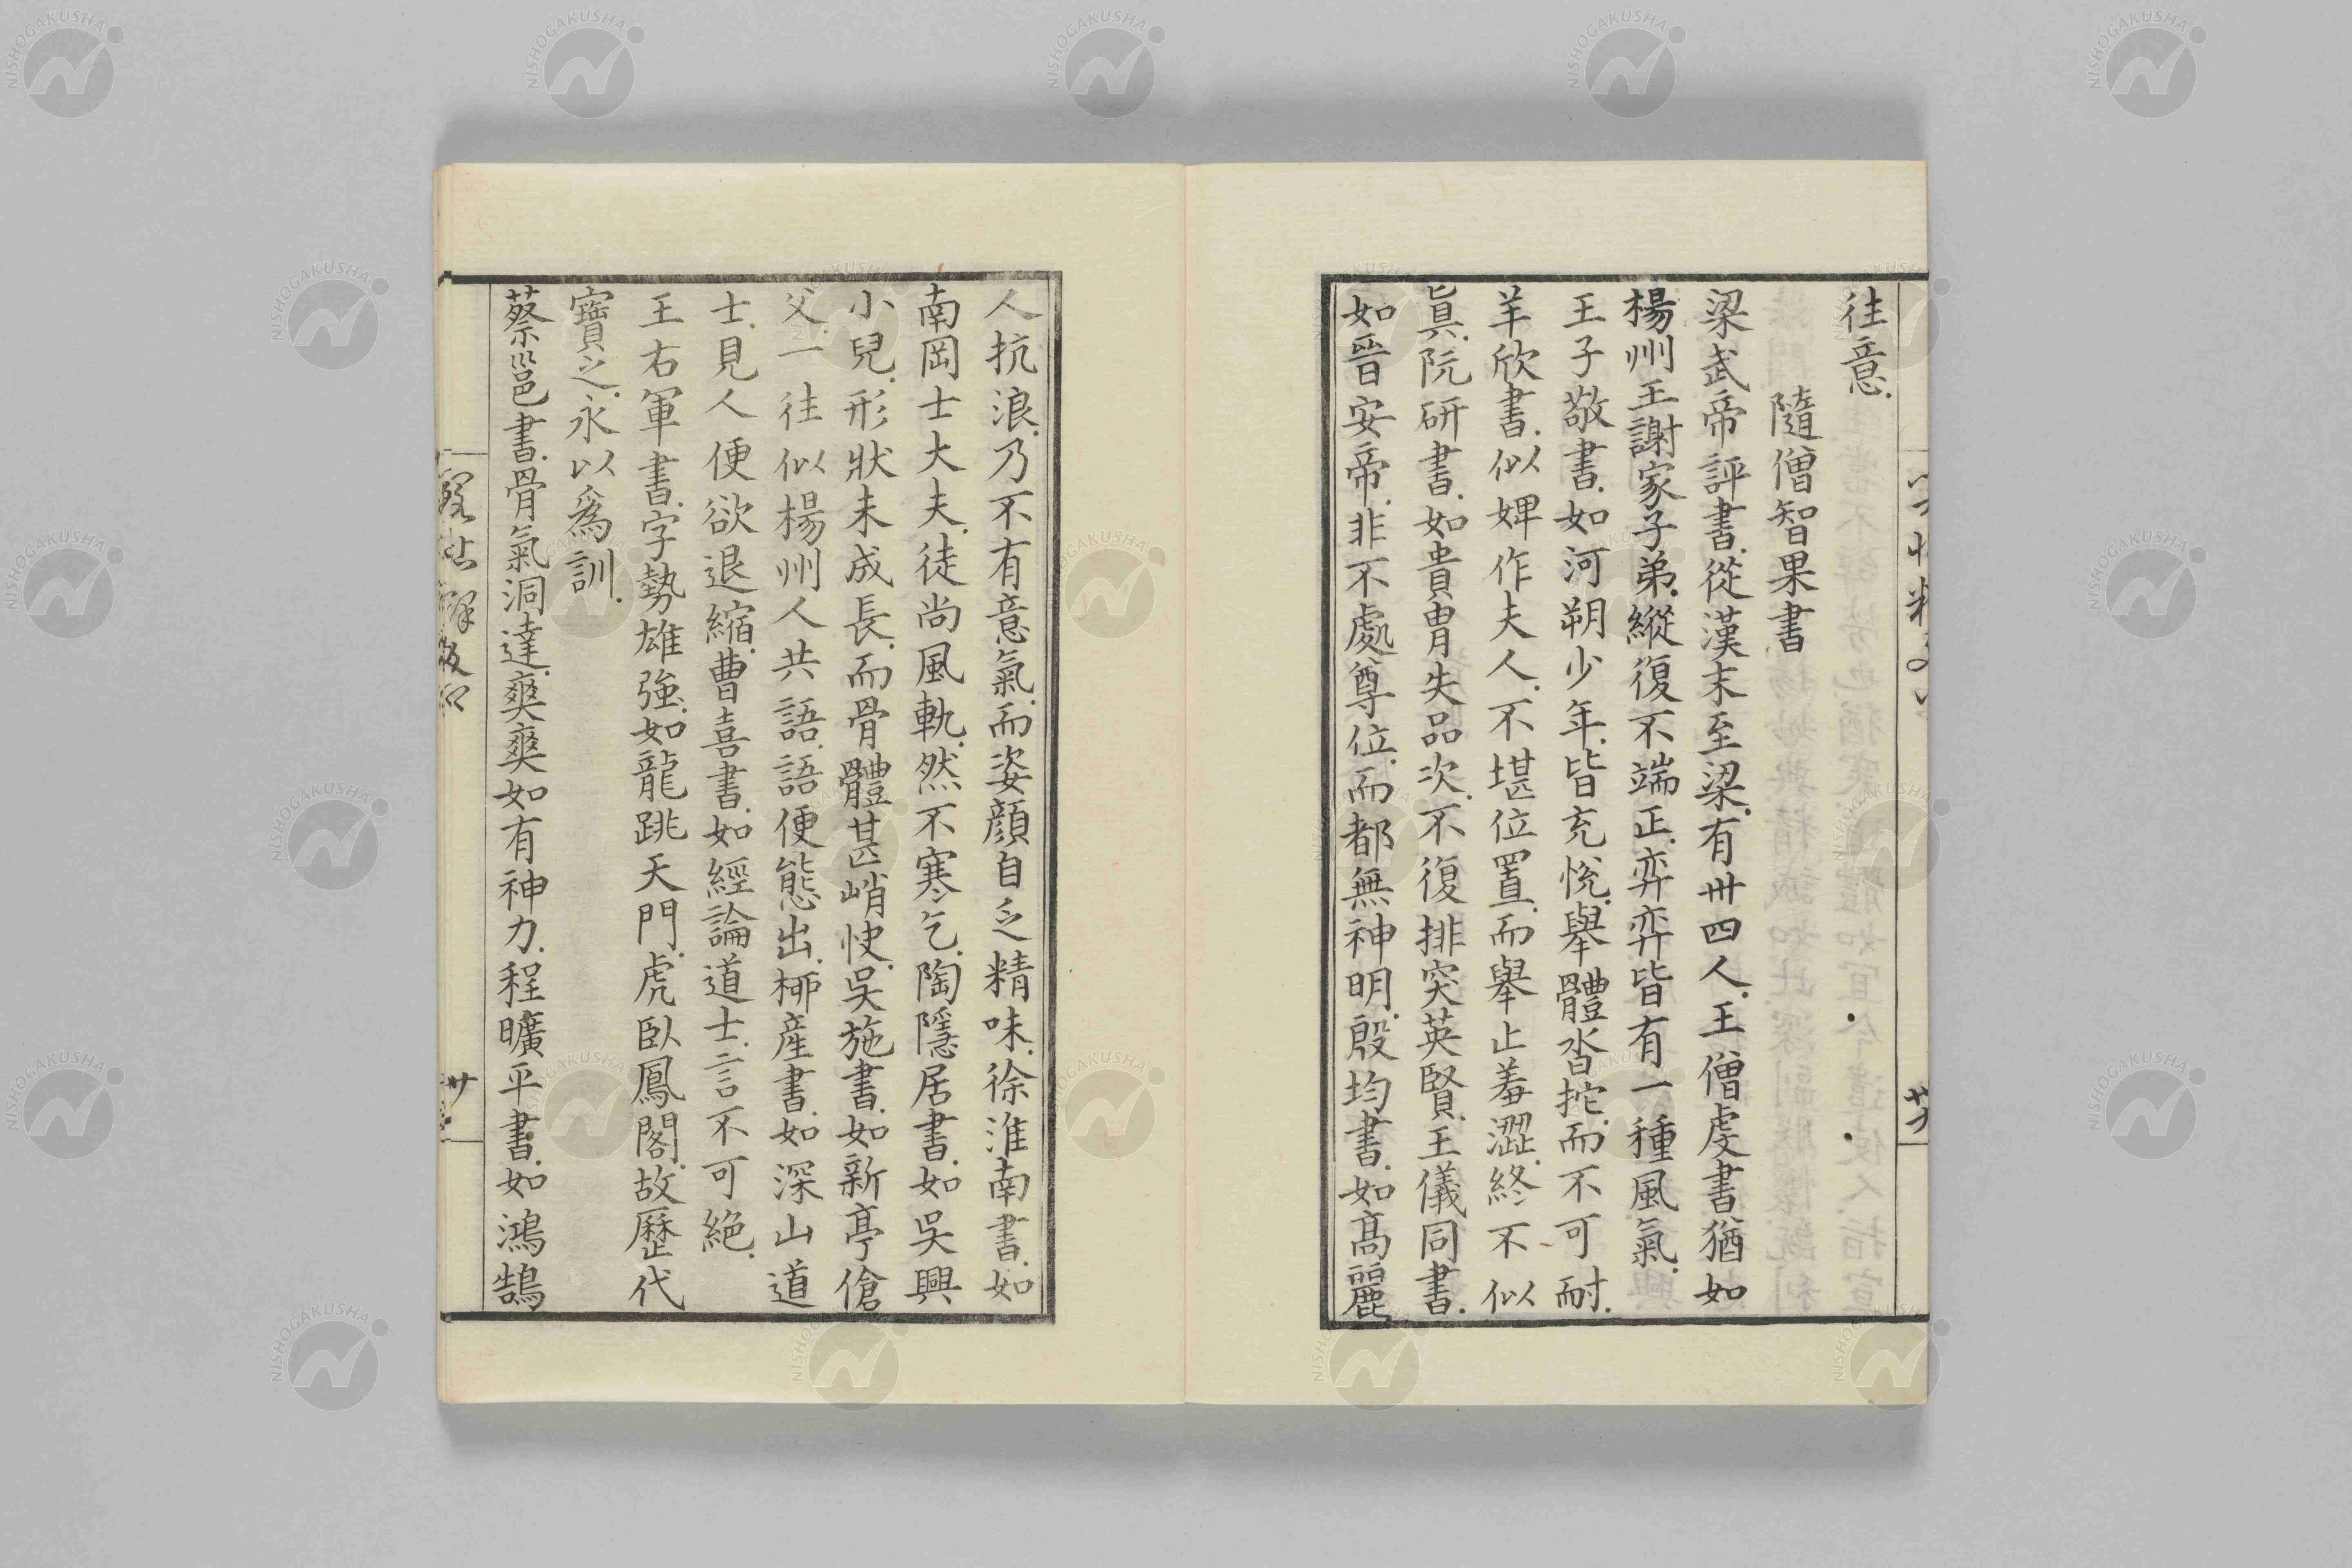 往意.
隨僧智果書
梁武帝評書.從漢末至梁.有卅四人.王僧虔書.猶如
楊州王謝家子弟.縱復不端正.弈弈皆有一種風氣.
王子敬書.如河朔少年.皆充悅.舉體沓拕.而不可耐.
羊欣書.似婢作夫人.不堪位置.而舉止羞澀.終不似
眞.阮研書.如貴冑失品次.不復排突英賢.王儀同書.
如晉安帝.非不處尊位.而都無神明.殷均書.如髙麗
人抗浪.乃不有意氣.而姿顔自乏精味.徐淮南書.如
南岡士大夫.徒尚風軌.然不寒乞.陶隱居書.如吳興
小兒.形狀未成長.而骨體甚峭快.吳施書.如新亭傖
父.一往似楊州人共語.語便態出.栁産書.如深山道
士.見人便欲退縮.曹喜書.如經論道士.言不可絶.
王右軍書.字勢雄強.如龍跳天門.虎臥鳳閣.故歴代
寶之.永以爲訓.
蔡邕書.骨氣洞達.爽爽如有神力.程曠平書.如鴻鵠